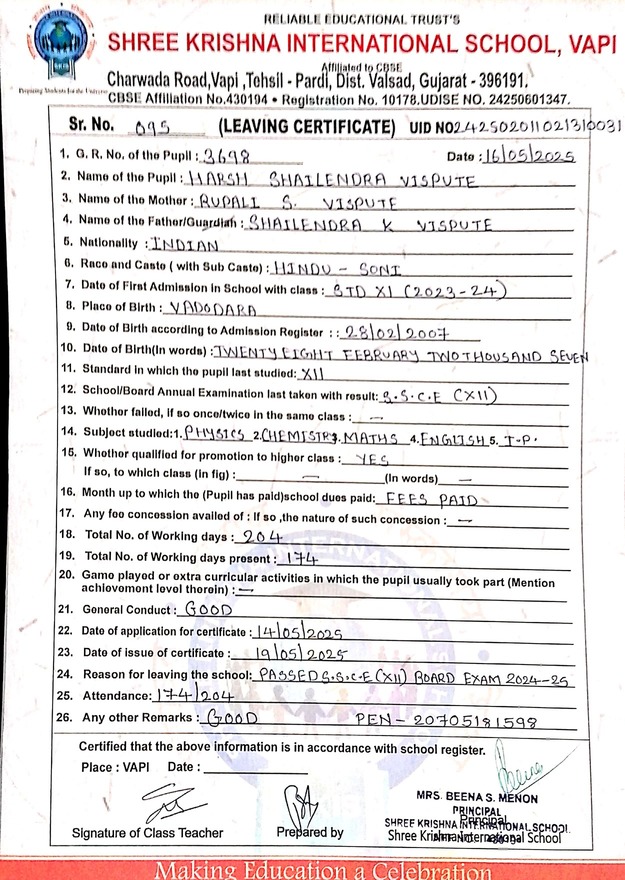 RELIABLE EDUCATIONAL TRUST'S
SHREE KRISHNA INTERNATIONAL SCHOOL, VAPI
Affiliated to CBSE
Charwada Road,Vapi ,Tehsil - Pardi, Dist. Valsad, Gujarat - 396191.
CBSE Affiliation No.430194 • Registration No. 10178.UDISE NO. 24250601347.
Preparing Students for the Universe
Sr. No. 095 (LEAVING CERTIFICATE) UID NO242502011021310031
1. G. R. No. of the Pupil : 3698 Date : 16/05/2025
2. Name of the Pupil : HARSH SHAILENDRA VISPUTE
3. Name of the Mother : RUPALI S. VISPUTE
4. Name of the Father/Guardian : SHAILENDRA K VISPUTE
5. Nationality : INDIAN
6. Race and Caste ( with Sub Caste) : HINDU - SONI
7. Date of First Admission in School with class : STD XI (2023-24)
8. Place of Birth : VADODARA
9. Date of Birth according to Admission Register : : 28/02/2007
10. Date of Birth(In words) : TWENTY EIGHT FEBRUARY TWO THOUSAND SEVEN
11. Standard in which the pupil last studied: XII
12. School/Board Annual Examination last taken with result: S.S.C.E (XII)
13. Whether failed, if so once/twice in the same class : —
14. Subject studied:1. PHYSICS 2. CHEMISTRY 3. MATHS 4. ENGLISH 5. I.P.
15. Whether qualified for promotion to higher class : YES
If so, to which class (In fig) : — (In words) —
16. Month up to which the (Pupil has paid)school dues paid: FEES PAID
17. Any fee concession availed of : If so ,the nature of such concession : —
18. Total No. of Working days : 204
19. Total No. of Working days present : 174
20. Game played or extra curricular activities in which the pupil usually took part (Mention
achievement level therein) : —
21. General Conduct : GOOD
22. Date of application for certificate : 14/05/2025
23. Date of issue of certificate : 19/05/2025
24. Reason for leaving the school: PASSED S.S.C.E (XII) BOARD EXAM 2024-25
25. Attendance: 174/204
26. Any other Remarks : GOOD PEN - 20705181598
Certified that the above information is in accordance with school register.
Place : VAPI Date :
MRS. BEENA S. MENON
PRINCIPAL
Principal
SHREE KRISHNA INTERNATIONAL SCHOOL.
Signature of Class Teacher Prepared by Shree Krishna International School
Making Education a Celebration